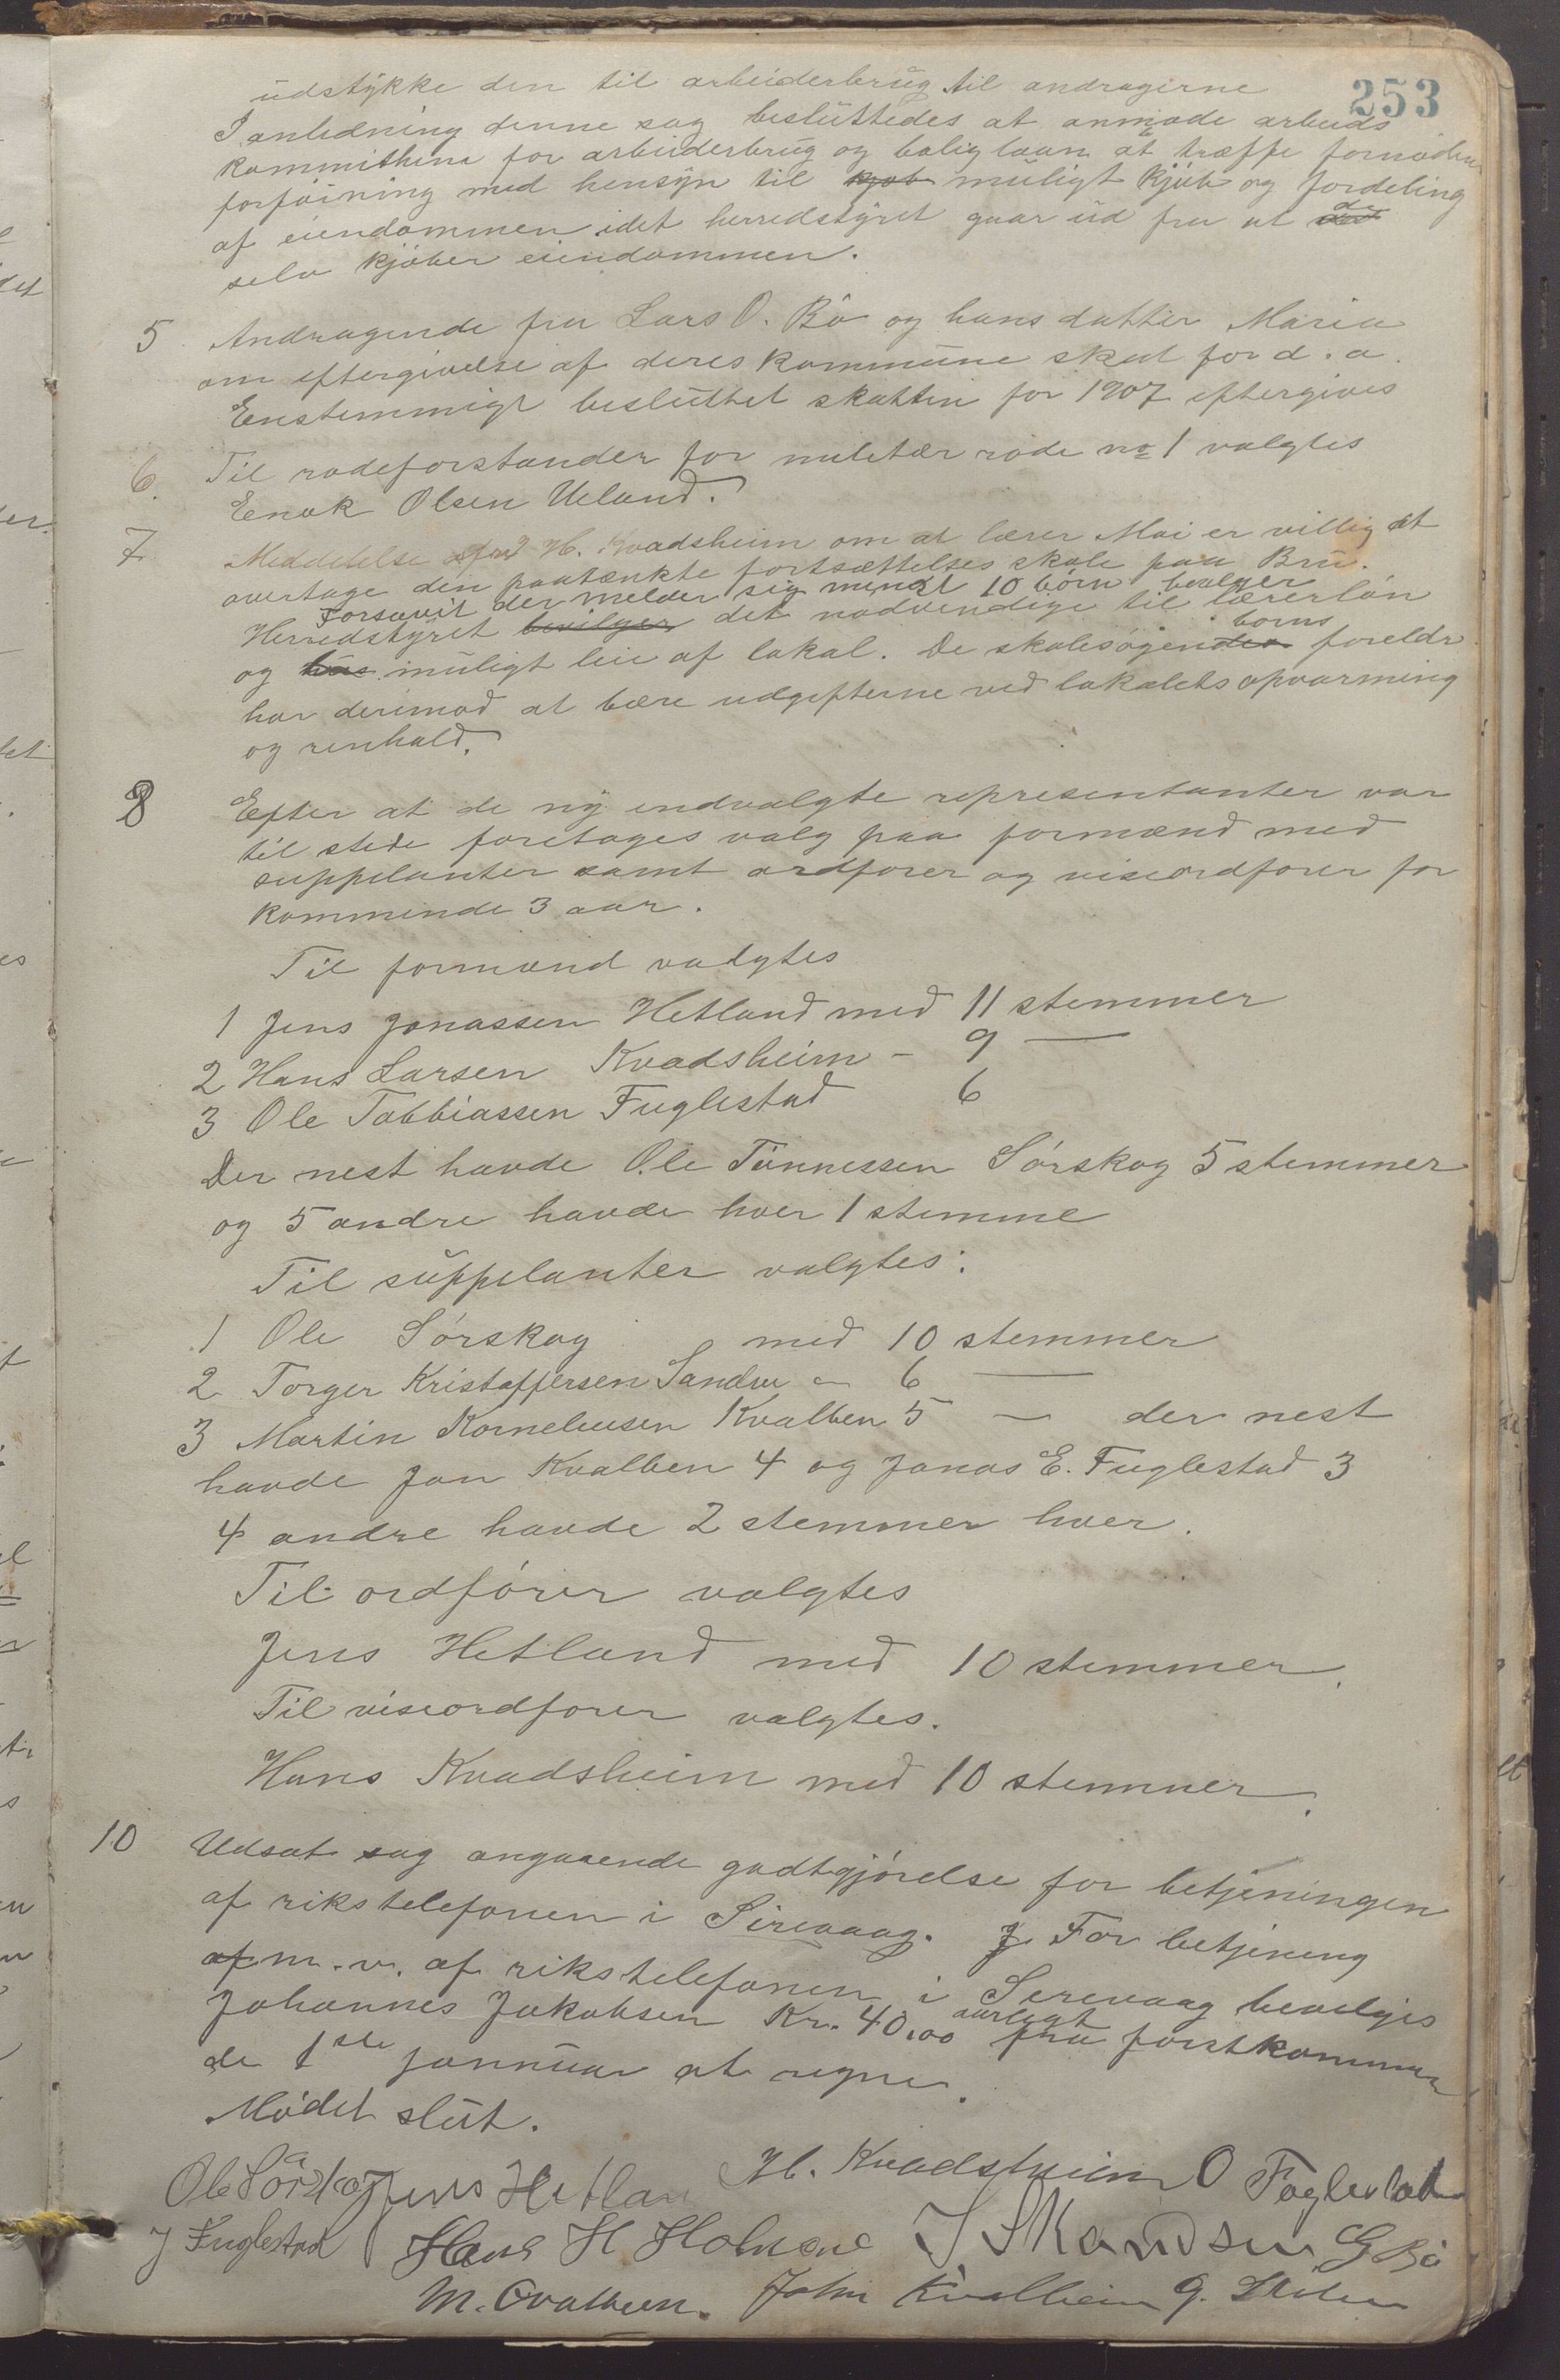 253
udstykke den til arbeiderbrug til andragerne
I anledning denne sag besluttedes at anmode arbeids
kommitheen for arbeiderbrug og boliglaan at træffe fornøden
forføining med hensyn til kjøb muligt kjøb og fordeling
af eiendommen idet herredstyret gaar ud fra at de
selv kjøber eiendommen.
5 Andragende fra Lars O. Bø og hans datter Maria
om eftergivelse af deres kommune skat for d. a.
Enstemmigt besluttet skatten for 1907 eftergives
6. Til rodeforstander for militær rode no 1 valgtes
Enok Olsen Ueland.
7 Meddelelse fra H. Kvadsheim om at lærer Moi er villig at
overtage den paatænkte fortsættelses skole paa Bru.
Forsavit der melder sig mindst 10 børn bevlger
Herredstyret bevilger det nødvendige til lærerløn
og hus muligt leie af lokal. De skolesøgendes børns foreldr
har derimod at bære udgifterne ved lokalets opvarming
og renhold.
8 Efter at de ny indvalgte representanter var
til stede foretages valg paa formænd med
suppelanter samt ordfører og viseordfører for
kommende 3 aar.
Til formænd valgtes
1 Jens Jonassen Hetland med 11 stemmer
2 Hans Larsen Kvadsheim - 9 —
3 Ole Tobbiassen Fuglestad 6
Der nest havde Ole Tønnessen Sørskog 5 stemmer
og 5 andre havde hver 1 stemme
Til suppelanter valgtes:
1 Ole Sørskog med 10 stemmer
2 Torger Kristoffersen Sandve - 6 —
3 Martin Korneliusen Kvalben 5 — der nest
havde Jon Kvalben 4 og Jonas E. Fuglestad 3
4 andre havde 2 stemmer hver.
Til ordfører valgtes
Jens Hetland med 10 stemmer.
Til viseordfører valgtes.
Hans Kvadsheim med 10 stemmer.
10 Udsat sag angaaende godtgjørelse for betjeningen
af rikstelefonen i Sirevaag. For betjening
af m.v. af rikstelefonen i Serevaag bevelges
Johannes Jakobsen Kr. 40.00 aarlegt fra førstkommen
de 1ste jannuar at regne.
Mødet slut.
Ole Sørskog Jens Hetland H. Kvadsheim O Foglestad
J Fuglestad Hans H Holmane J Skandsen G Bø
M. Qvalbein. John Kvalbein G.